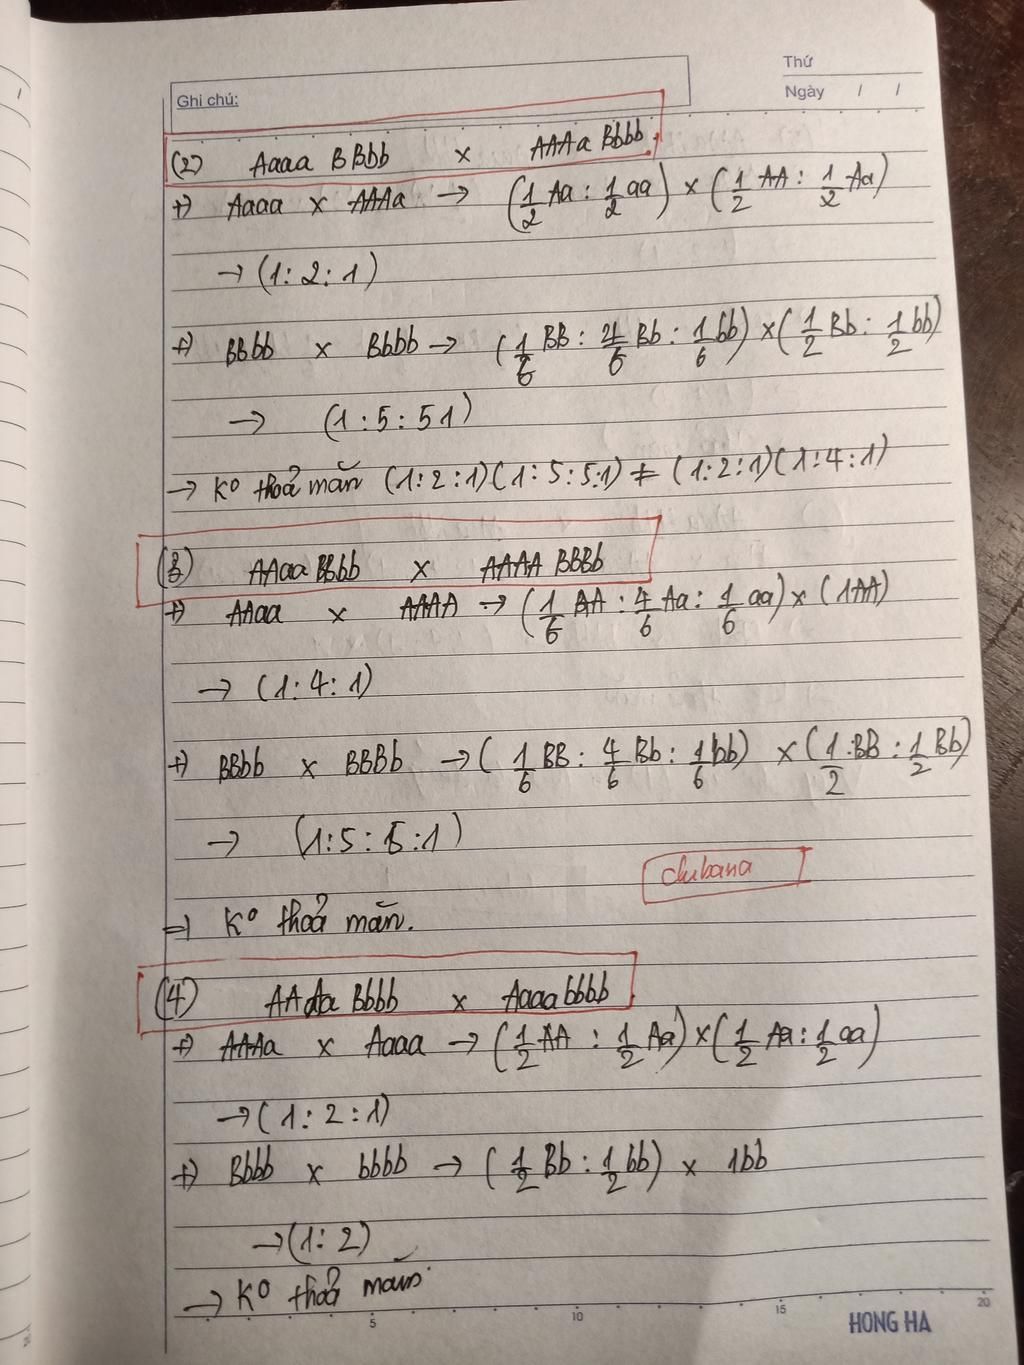 Thứ
Ghi chú:
Ngày / /
(2) Aaaa BBbb x AAAa Bbbb
+) Aaaa x AAAa → (1/2 Aa : 1/2 aa) x (1/2 AA : 1/2 Aa)
→ (1: 2 : 1)
+) BBbb x Bbbb → (1/6 BB : 4/6 Bb : 1/6 bb) x (1/2 Bb : 1/2 bb)
→ (1 : 5 : 5 1)
→ K⁰ thoả mãn (1:2:1)(1:5:5:1) ≠ (1:2:1)(1:4:1)
(3) AAaa BBbb x AAAA BBBb
+) AAaa x AAAA → (1/6 AA : 4/6 Aa : 1/6 aa) x (1AA)
→ (1: 4 : 1)
+) BBbb x BBBb → (1/6 BB : 4/6 Bb : 1/6 bb) x (1/2 BB : 1/2 Bb)
→ (1 : 5 : 5 : 1)
clubana
→ K⁰ thoả mãn.
(4) AAAa Bbbb x Aaaa bbbb
+) AAAa x Aaaa → (1/2 AA : 1/2 Aa) x (1/2 Aa : 1/2 aa)
→ (1 : 2 : 1)
+) Bbbb x bbbb → (1/2 Bb : 1/2 bb) x 1bb
→ (1: 2)
→ K⁰ thoả mãn
5 10 15 20
HONG HA